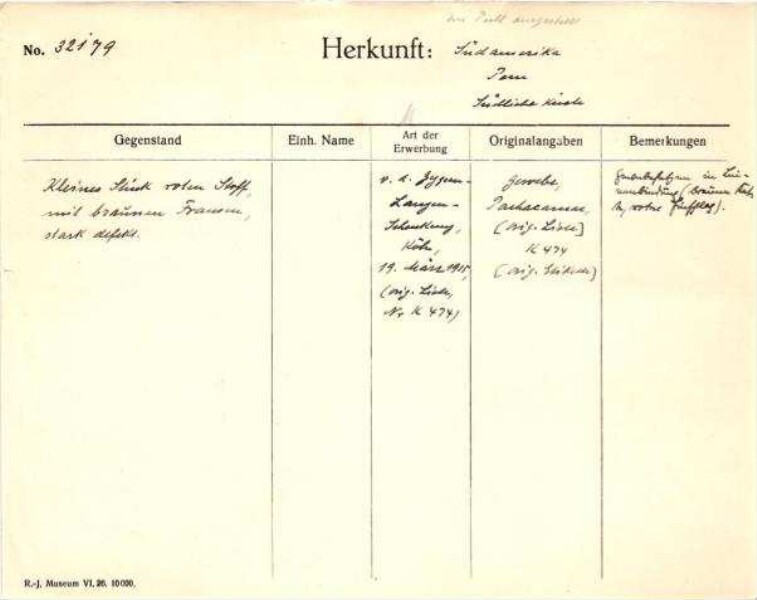 No. 32179
Herkunft: Südamerika
Peru
Südliche Küste
Gegenstand
Einh. Name
Art der
Erwerbung
Originalangaben
Bemerkungen
Kleines Stück roten Stoff,
mit braunen Fransen,
stark defekt.
v. d. Zypen-
Langen-
Schenkung,
Köln,
19. März 1915,
(orig. Liste,
Nr K 474)
Gewebe,
Pachacamac,
(orig. Liste)
K 474
(orig. Etikette)
in Lei-
nenbindung (braune
rote
R.-J. Museum VI. 26. 10000.